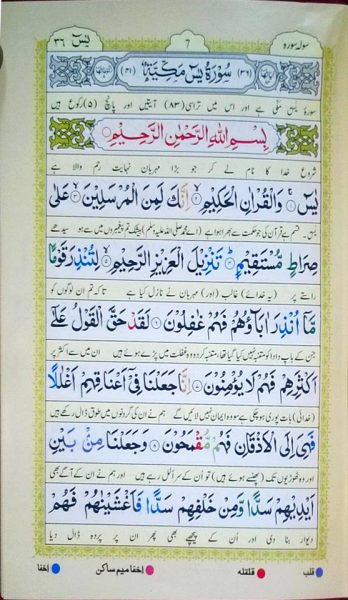 سولہ سورہ 7 یٰسٓ ۳۶
(۳۶) سُوْرَةُ يٰسٓ مَكِّيَّةٌ (۴۱)
سورۂ یٰسٓ مکی ہے اور اس میں تراسی (۸۳) آیتیں اور پانچ (۵) رکوع ہیں
بِسْمِ اللّٰهِ الرَّحْمٰنِ الرَّحِيْمِ
شروع خدا کا نام لے کر جو بڑا مہربان نہایت رحم والا ہے
يٰسٓ ۚ وَالْقُرْاٰنِ الْحَكِيْمِ ۙ اِنَّكَ لَمِنَ الْمُرْسَلِيْنَ ۙ عَلٰى
یٰسٓ۔ قسم ہے قرآن کی جو حکمت سے بھرا ہوا ہے (اے محمد صلی اللہ علیہ وسلم) بیشک تم پیغمبروں میں سے ہو سیدھے
صِرَاطٍ مُّسْتَقِيْمٍ ؕ تَنْزِيْلَ الْعَزِيْزِ الرَّحِيْمِ ۙ لِتُنْذِرَ قَوْمًا
راستے پر (یہ خدائے) غالب (اور) مہربان نے نازل کیا ہے تاکہ تم ان لوگوں کو
مَّاۤ اُنْذِرَ اٰبَآؤُهُمْ فَهُمْ غٰفِلُوْنَ لَقَدْ حَقَّ الْقَوْلُ عَلٰٓى
جن کے باپ دادا کو متنبہ نہیں کیا گیا تھا، متنبہ کردو وہ غفلت میں پڑے ہوئے ہیں ان میں سے اکثر پر
اَكْثَرِهِمْ فَهُمْ لَا يُؤْمِنُوْنَ اِنَّا جَعَلْنَا فِيْۤ اَعْنَاقِهِمْ اَغْلٰلًا
(خدا کی) بات پوری ہو چکی ہے سو وہ ایمان نہیں لائیں گے ہم نے ان کی گردنوں میں طوق ڈال رکھے ہیں
فَهِيَ اِلَى الْاَذْقَانِ فَهُمْ مُّقْمَحُوْنَ وَجَعَلْنَا مِنْۢ بَيْنِ
اور وہ ٹھوڑیوں تک (پھنسے ہوئے ہیں) تو ان کے سر اُلل رہے ہیں اور ہم نے ان کے آگے بھی
اَيْدِيْهِمْ سَدًّا وَّمِنْ خَلْفِهِمْ سَدًّا فَاَغْشَيْنٰهُمْ فَهُمْ
دیوار بنا دی اور اُن کے پیچھے بھی پھر ان پر پردہ ڈال دیا
قلب قلقلہ إخفا میم ساکن إخفا